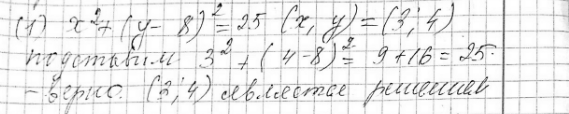 (1) x² + (y - 8)² = 25 (x, y) = (3; 4)
подставим 3² + (4-8)² = 9 + 16 = 25
- верно. (3; 4) является решением